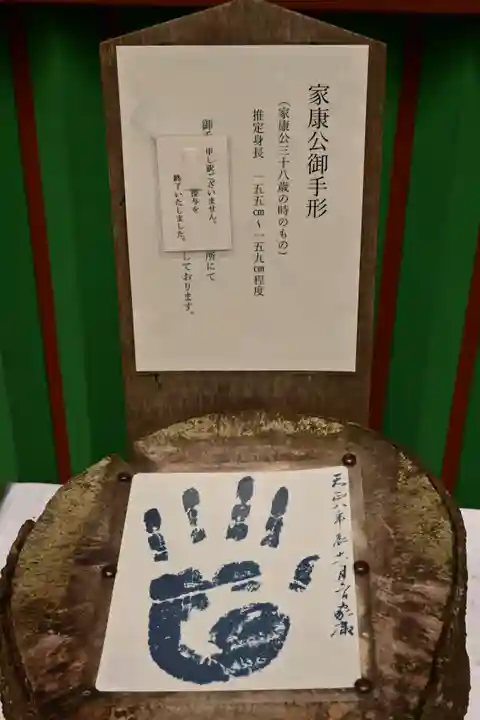 家康公御手形
(家康公三十八歳の時のもの)
推定身長 一五五㎝～一五九㎝程度
御
所にて
しております。
申し訳ございません、
授与を
終了いたしました。
天正八年